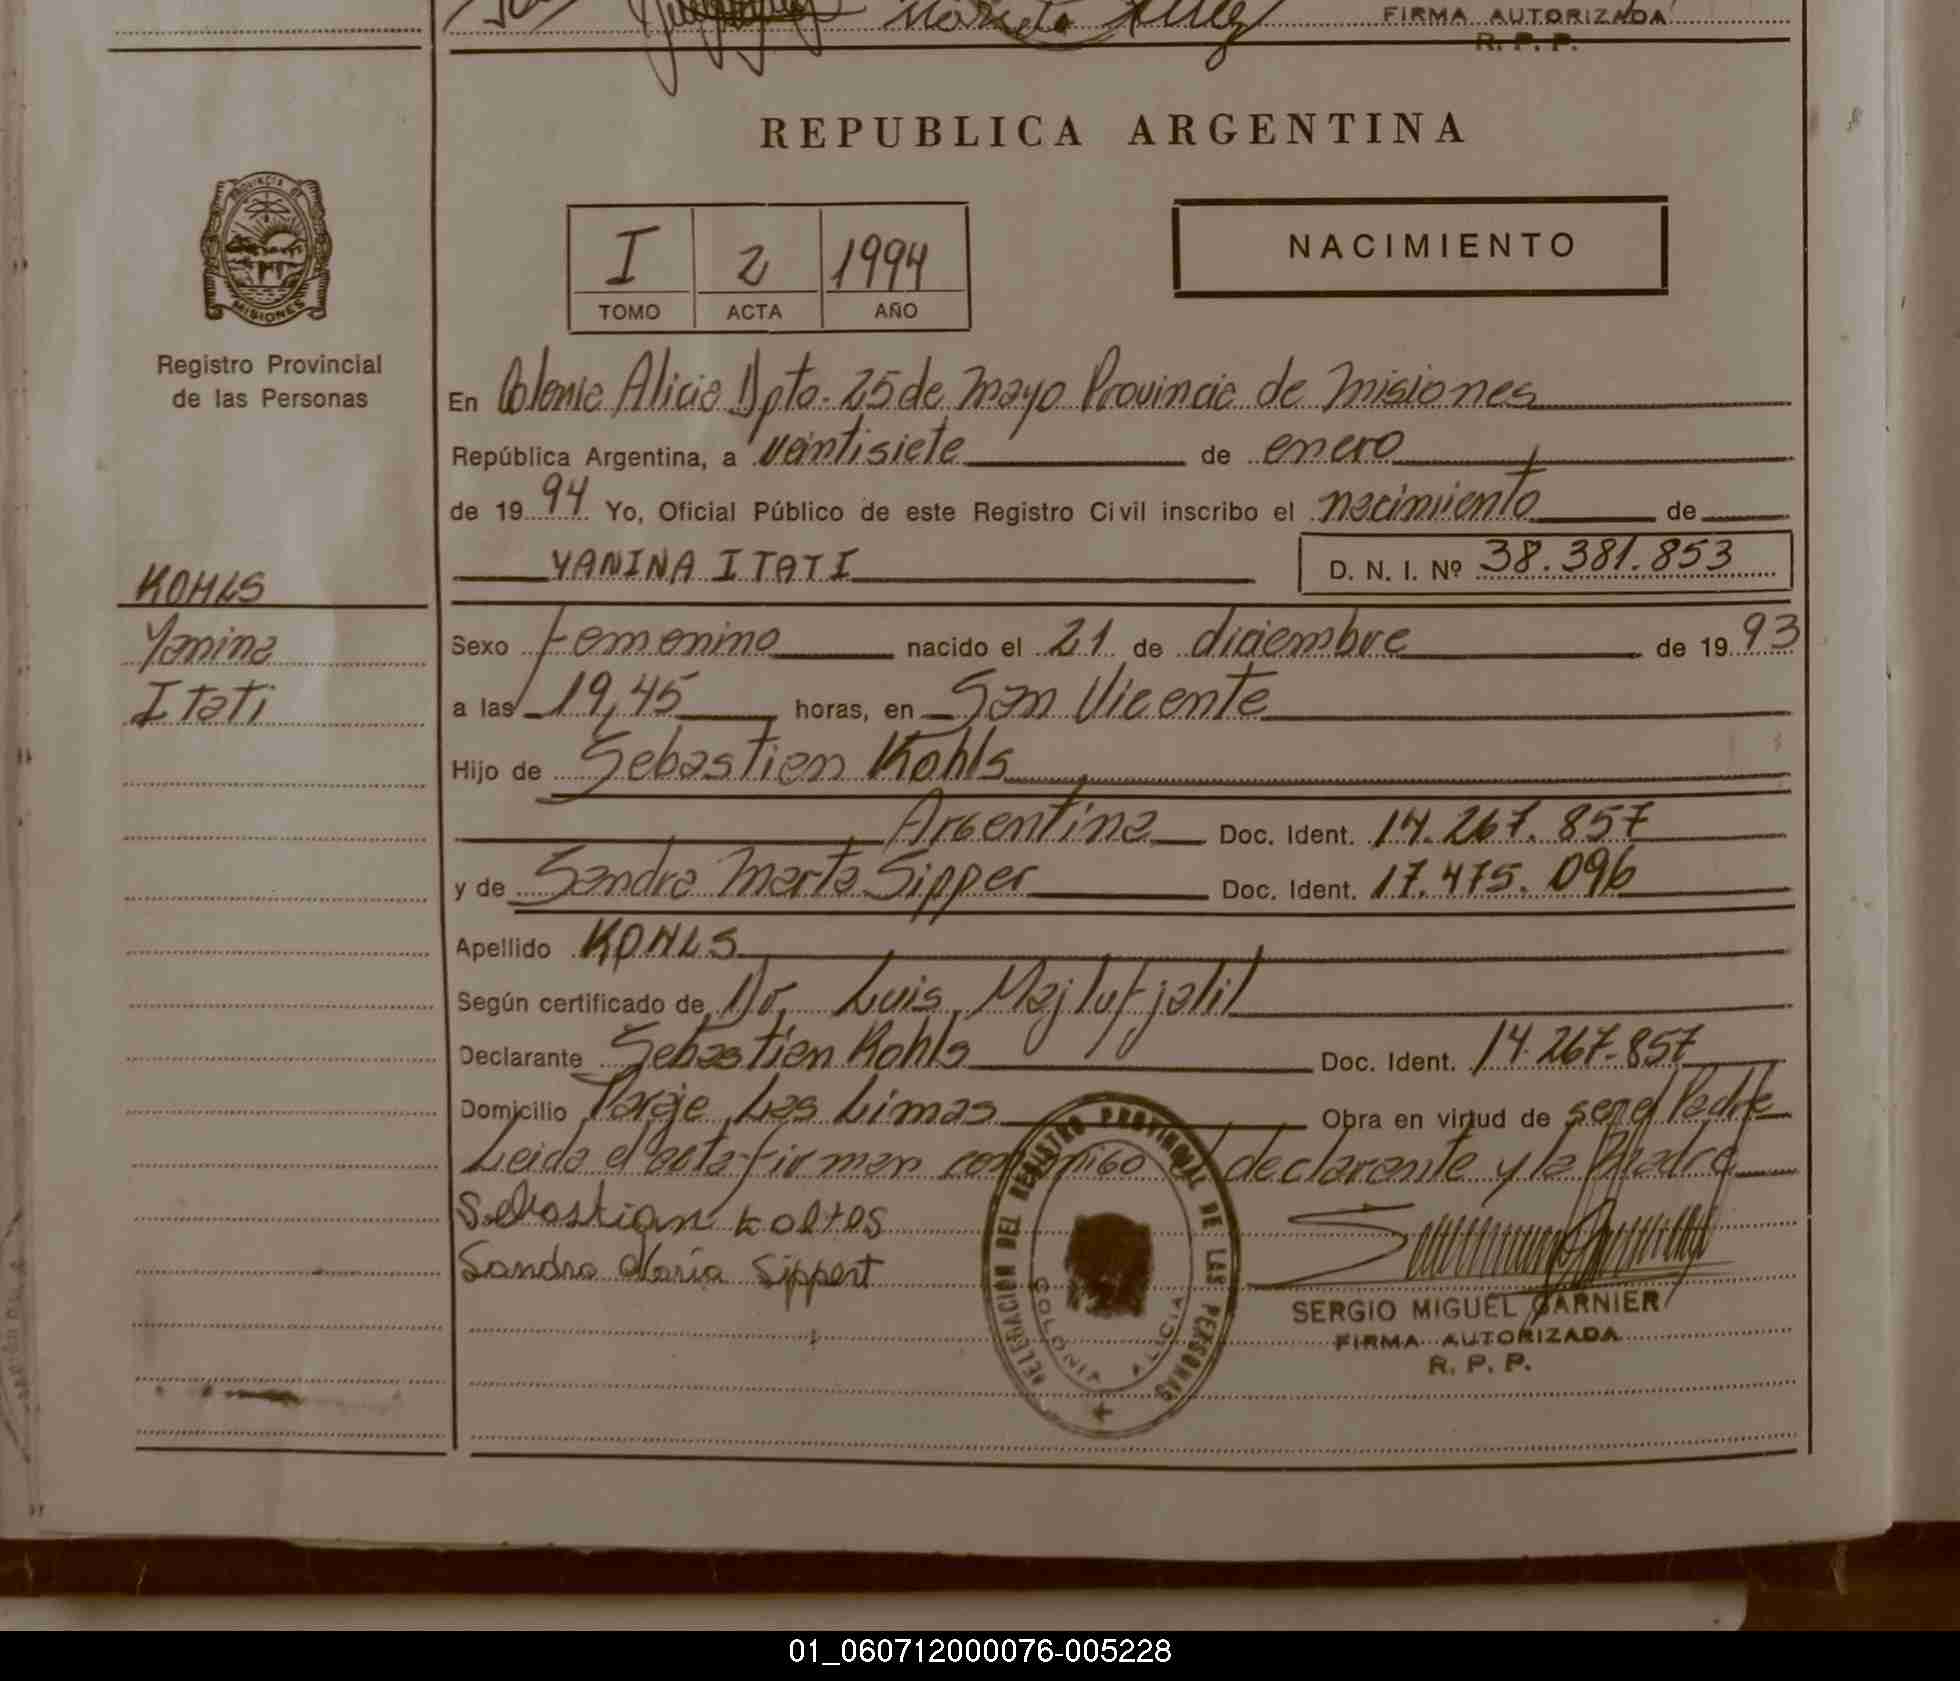 FIRMA AUTORIZADA
R. P. P.
REPUBLICA ARGENTINA
PROVINCIA DE
MISIONES
Registro Provincial
de las Personas
I 2 1994
TOMO ACTA AÑO
NACIMIENTO
En Colonia Alicia Dpto. 25 de Mayo Provincia de Misiones
República Argentina, a veintisiete de enero
de 19 94 Yo, Oficial Público de este Registro Civil inscribo el nacimiento de
YANINA ITATI D. N. I. Nº 38.381.853
KOHLS
Yanina
Itati
Sexo Femenino nacido el 21 de diciembre de 19 93
a las 19,45 horas, en San Vicente
Hijo de Sebastian Kohls
Argentina Doc. Ident. 14.267.857
y de Sandra Marta Sipper Doc. Ident. 17.475.096
Apellido KOHLS
Según certificado de Dr. Luis Majluf jalil
Declarante Sebastian Kohls Doc. Ident. 14.267.857
Domicilio Paraje Las Limas Obra en virtud de ser el Padre
Leida el acta firman conmigo el declarante y la Madre
Sebastian Kohls
Sandra Maria Sippert
DELEGACION DEL REGISTRO PROVINCIAL DE LAS PERSONAS
COLONIA ALICIA
SERGIO MIGUEL GARNIER
FIRMA AUTORIZADA
R. P. P.
01_060712000076-005228